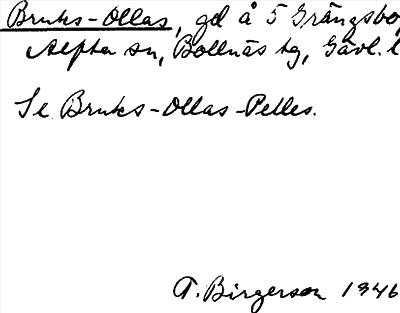 Bruks-Ollas, gd å 5 Grängsbo
Alfta sn, Bollnäs tg, Gävl. l
Se Bruks-Ollas-Pelles.
T. Birgerson 1946